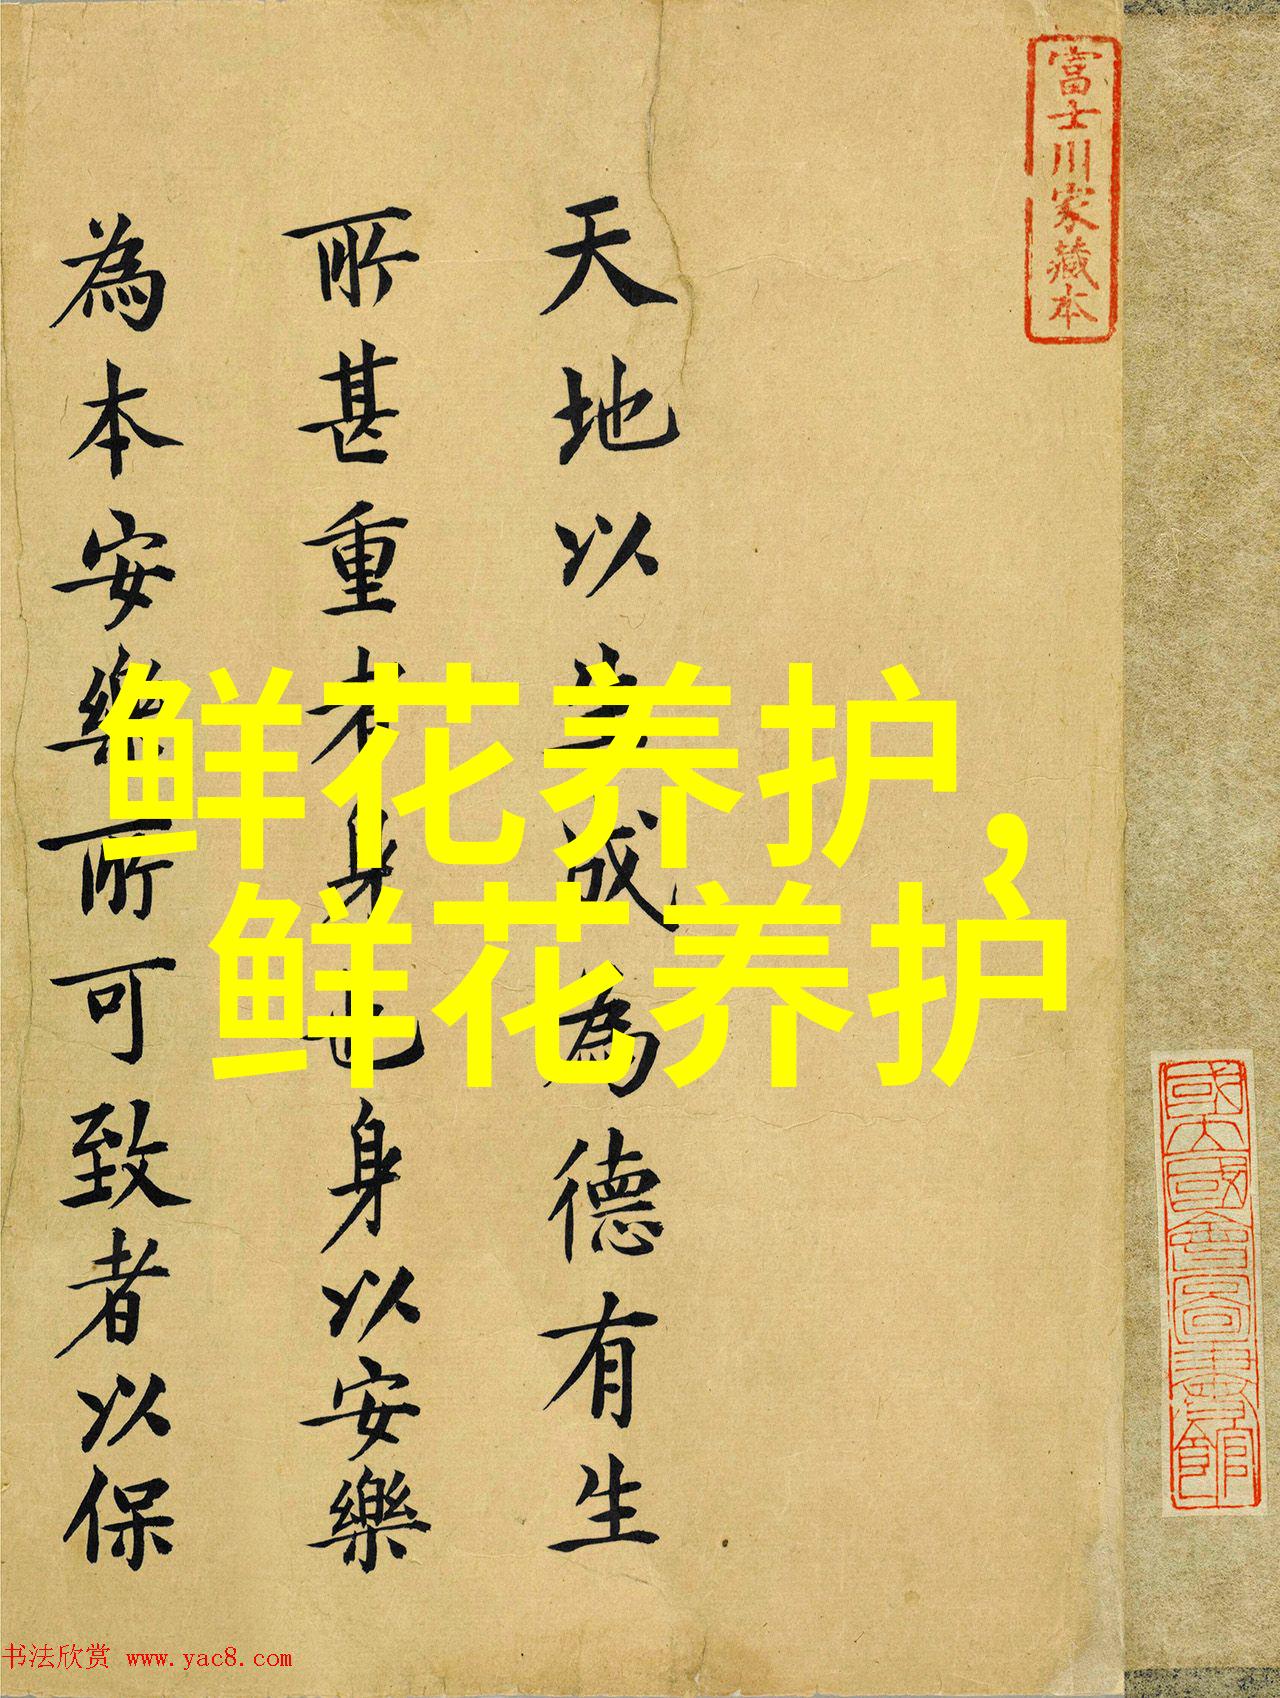 鲜花养护，
鲜花养护
富士川家藏本
天地以生成為德有生
所甚重者身也身以安樂
為本安樂所可致者以保
國立國會圖書館
书法欣赏 www.yac8.com